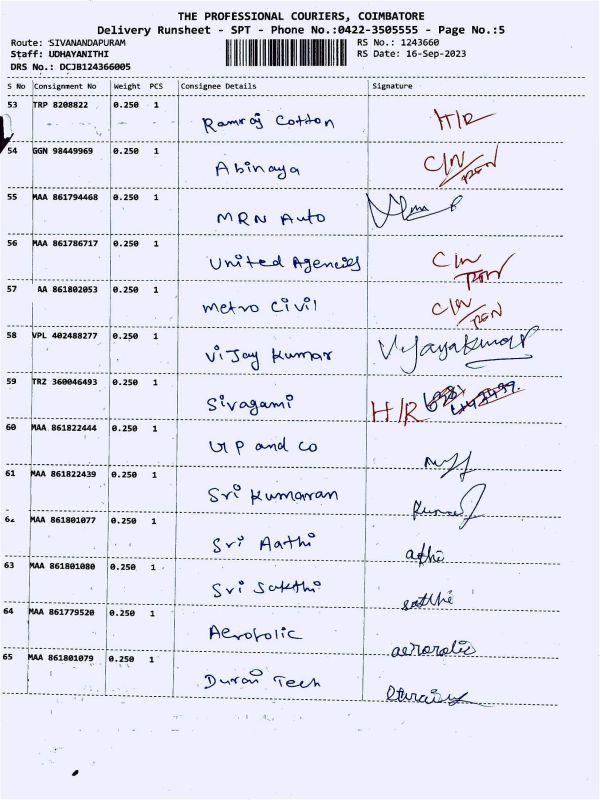 THE PROFESSIONAL COURIERS, COIMBATORE
Delivery Runsheet - SPT - Phone No.:0422-3505555 - Page No.:5
Route: SIVANANDAPURAM RS No.: 1243660
Staff: UDHAYANITHI RS Date: 16-Sep-2023
DRS No.: DCJB124366005
S No Consignment No Weight PCS Consignee Details Signature
53 TRP 8208822 0.250 1
Ramraj Cotton H/R
54 GGN 98449969 0.250 1
Abinaya C/N
55 MAA 861794468 0.250 1
MRN Auto
56 MAA 861786717 0.250 1
United Agencies
57 AA 861802053 0.250 1
metro Civil
58 VPL 402488277 0.250 1
ViJay Kumar Vijayakumar
59 TRZ 360046493 0.250 1
Sivagami H/R
60 MAA 861822444 0.250 1
P and co
61 MAA 861822439 0.250 1
Sri Kumaran
62 MAA 861801077 0.250 1
Sri Aathi athi
63 MAA 861801080 0.250 1
Sri Sakthi sakthi
64 MAA 861779520 0.250 1
Aerotolic
65 MAA 861801079 0.250 1
Durai Tech